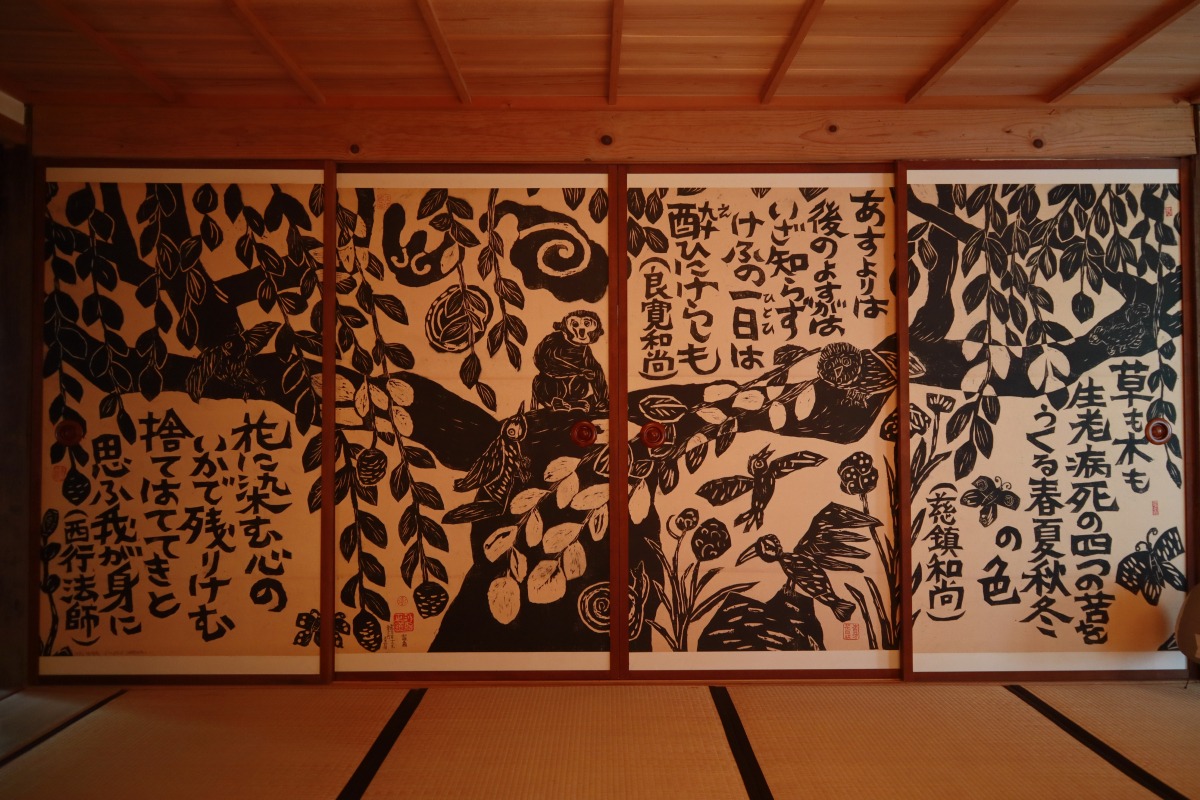 草も木も
生老病死の四つの苦を
うくる春夏秋冬
の色
(慈鎮和尚)
あすよりは
後のよすがは
いざ知らず
けふの一日は
ひとひ
酔ひにけらしも
(良寛和尚)
花に染む心の
いかで残りけむ
捨てはててきと
思ふ我が身に
(西行法師)